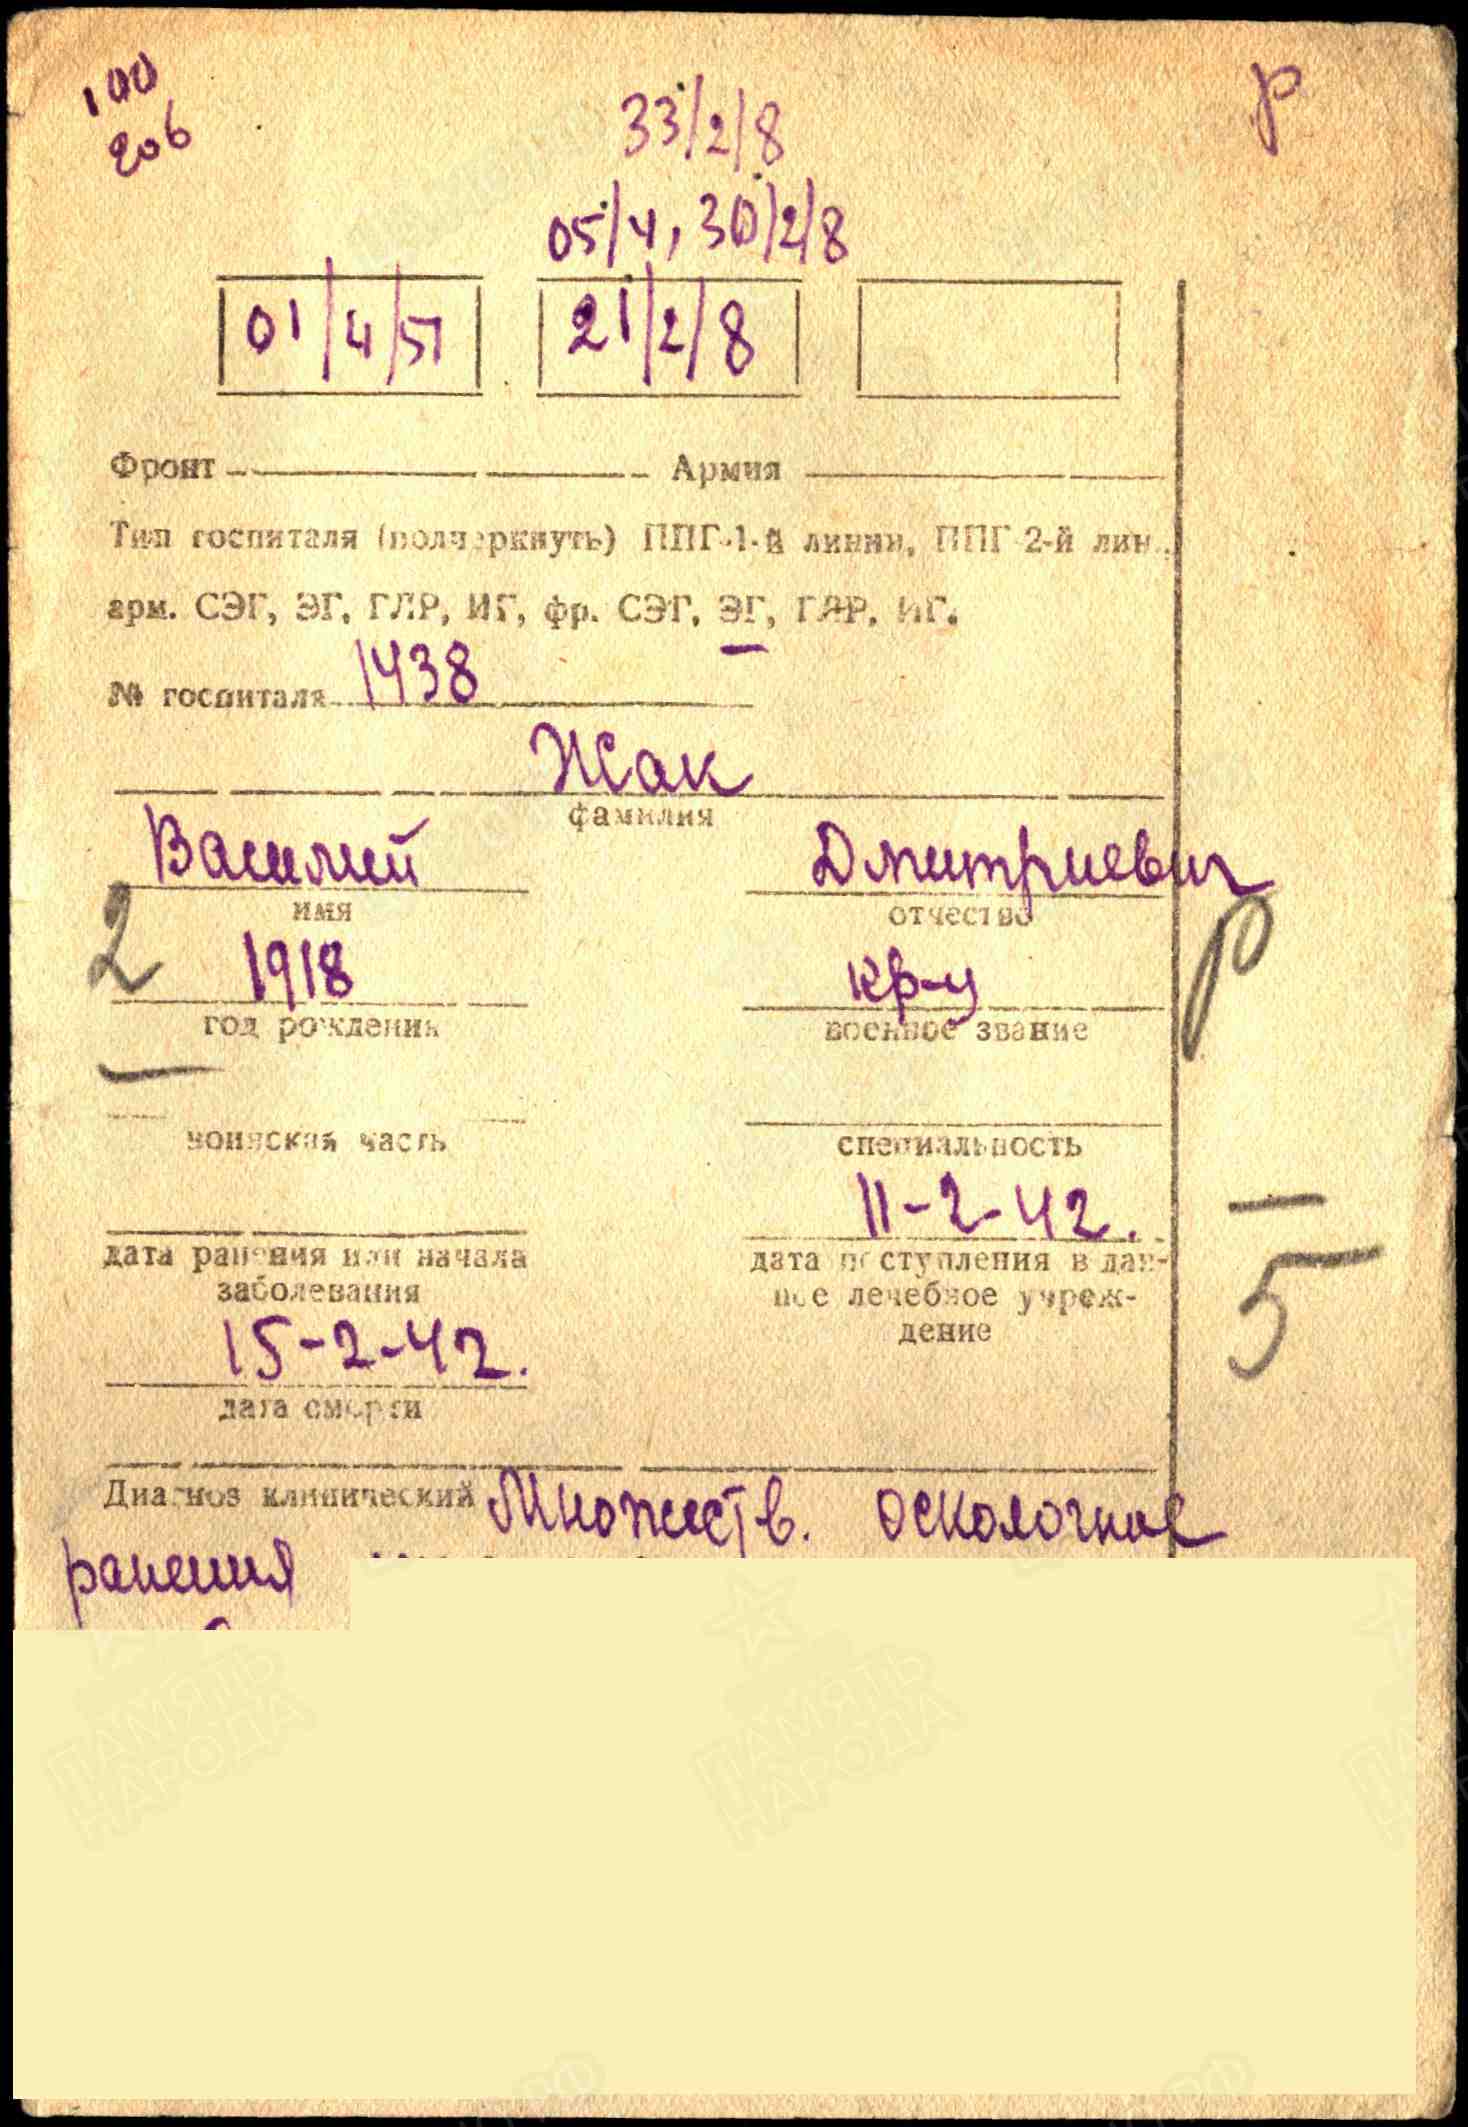 100
206
р
33/2/8
05/4, 30/2/8
01/4/5 21/2/8
Фронт Армия
Тип госпиталя (подчеркнуть) ППГ-1-й линии, ППГ 2-й лин.,
арм. СЭГ, ЭГ, ГЛР, ИГ, фр. СЭГ, ЭГ, ГЛР, ИГ.
№ госпиталя 1438
Жак
фамилия
Василий Дмитриевич
имя отчество
2 1918 кр-ц р
год рождения военное звание
воинская часть специальность
11-2-42.
дата ранения или начала заболевания
дата поступления в данное лечебное учреждение
5
15-2-42.
дата смерти
Диагноз клинический Множеств. осколочные
ранения
ПАМЯТЬ НАРОДА
ПАМЯТЬ НАРОДА